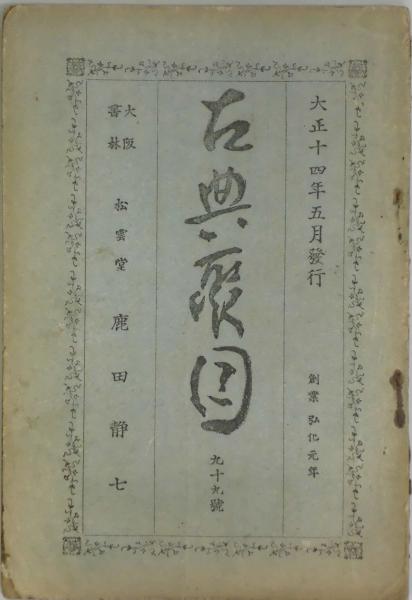 大正十四年五月發行
創業 弘化元年
古典聚目
九十九號
大阪
書林
松雲堂 鹿田靜七